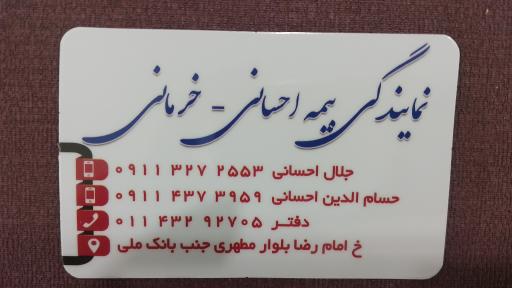 نمایندگی بیمه احسانی - خرمانی
جلال احسانی ۰۹۱۱ ۳۲۷ ۲۵۵۳
حسام الدین احسانی ۰۹۱۱ ۴۳۷ ۳۹۵۹
دفتر ۰۱۱ ۴۳۲ ۹۲۷۰۵
خ امام رضا بلوار مطهری جنب بانک ملی